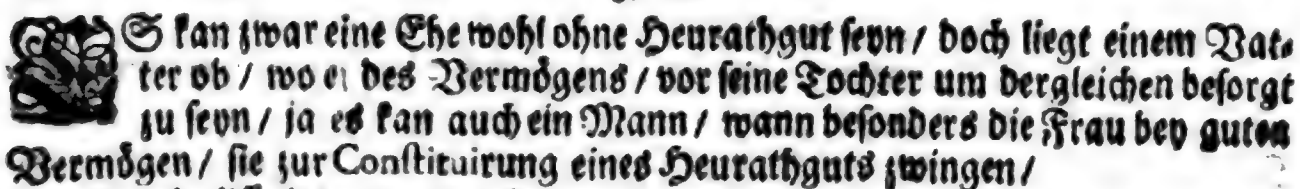 ES kan zwar eine Ehe wohl ohne Heurathgut seyn / doch liegt einem Vat-
ter ob / wo er des Vermögens / vor seine Tochter um dergleichen besorgt
zu seyn / ja es kan auch ein Mann / wann besonders die Frau bey guten
Vermögen / sie zur Constituirung eines Heurathguts zwingen /